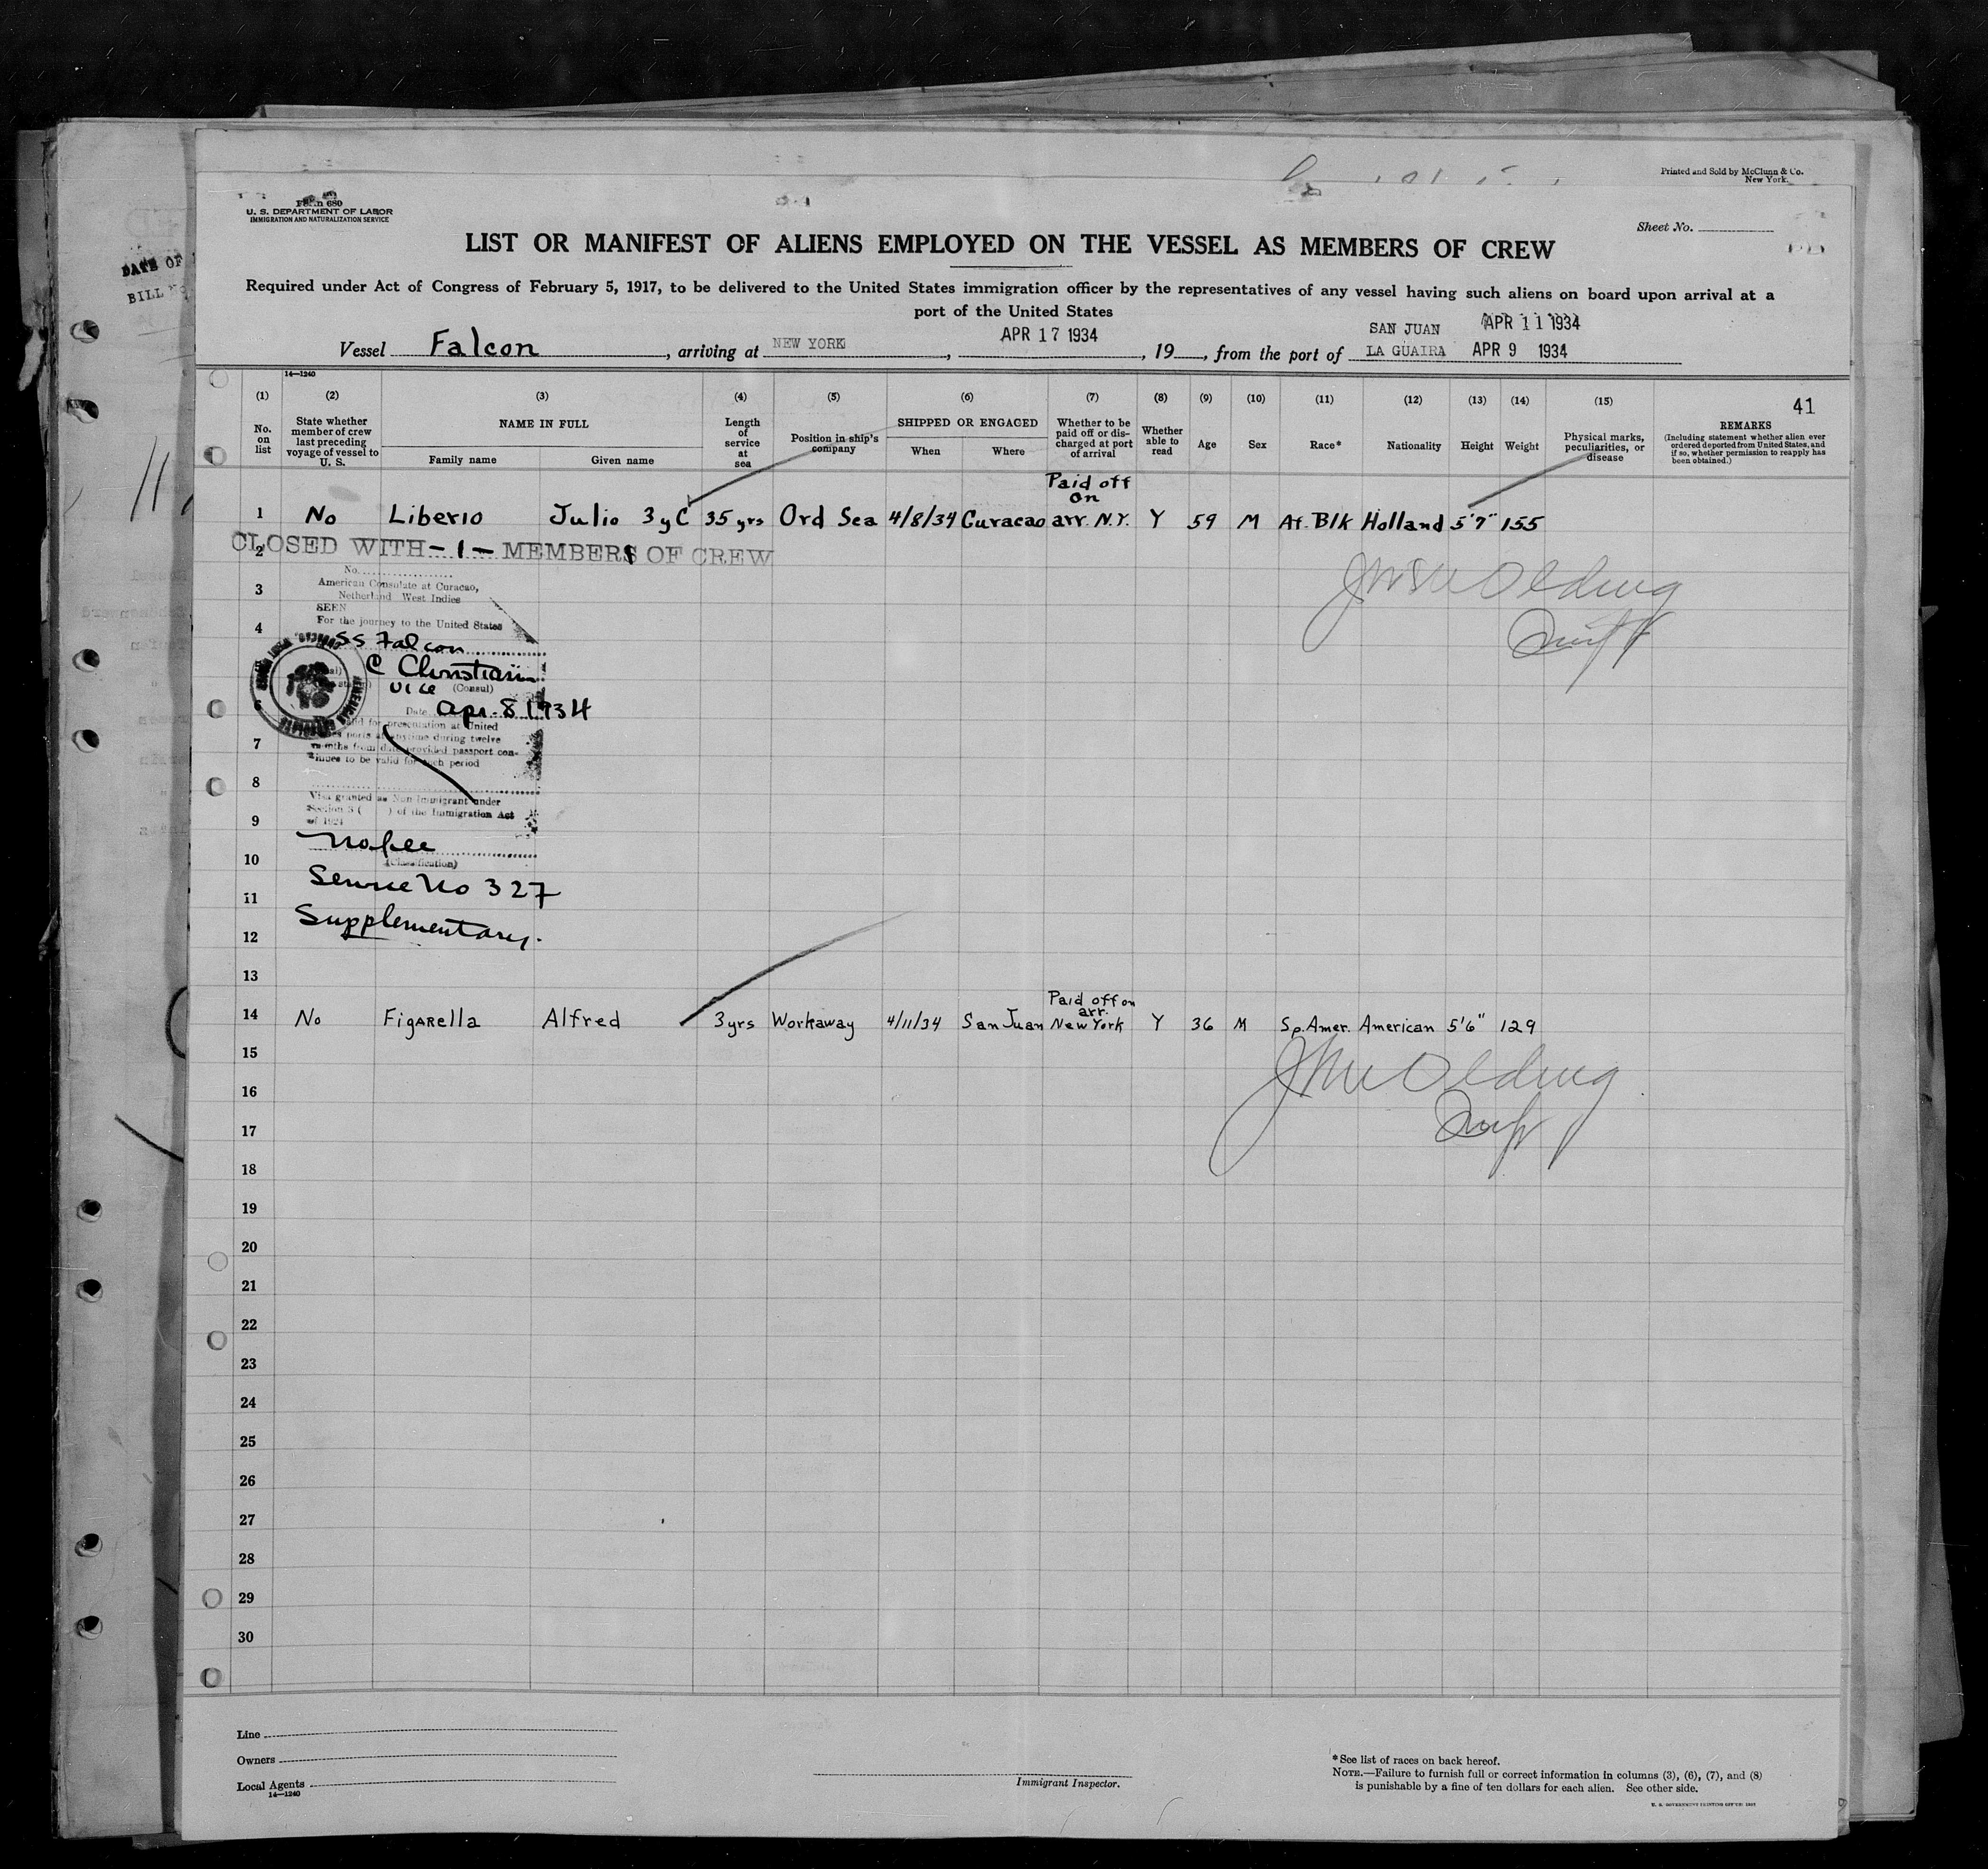 Printed and Sold by McClunn & Co.
New York.
Form 680
U. S. DEPARTMENT OF LABOR
IMMIGRATION AND NATURALIZATION SERVICE
Sheet No.
LIST OR MANIFEST OF ALIENS EMPLOYED ON THE VESSEL AS MEMBERS OF CREW
Required under Act of Congress of February 5, 1917, to be delivered to the United States immigration officer by the representatives of any vessel having such aliens on board upon arrival at a
port of the United States
SAN JUAN APR 11 1934
Vessel Falcon, arriving at NEW YORK, APR 17 1934, 19, from the port of LA GUAIRA APR 9 1934
DATE OF
BILL
14—1240
(1) (2) (3) (4) (5) (6) (7) (8) (9) (10) (11) (12) (13) (14) (15)
41
No. on list
State whether member of crew last preceding voyage of vessel to U. S.
NAME IN FULL
Family name
Given name
Length of service at sea
Position in ship's company
SHIPPED OR ENGAGED
When
Where
Whether to be paid off or discharged at port of arrival
Whether able to read
Age
Sex
Race*
Nationality
Height
Weight
Physical marks, peculiarities, or disease
REMARKS
(Including statement whether alien ever ordered deported from United States, and if so, whether permission to reapply has been obtained.)
1 No Liberio Julio 3 y C 35 yrs Ord Sea 4/8/34 Curacao Paid off on arr. N.Y. Y 59 M Af. Blk Holland 5'7" 155
2 CLOSED WITH - 1 - MEMBERS OF CREW
No.
American Consulate at Curacao,
3
Netherland West Indies
SEEN
For the journey to the United States
4
SS Falcon
C Christian
vice (Consul)
Date Apr. 8 1934
6
valid for presentation at United
ports at anytime during twelve
7
months from date provided passport con-
tinues to be valid for such period
8
Visa granted as Non Immigrant under
Section 3 ( ) of the Immigration Act
of 1924
9
No fee
(Classification)
10
Service No 327
11
Supplementary.
12
13
14 No Figarella Alfred 3 yrs Workaway 4/11/34 San Juan Paid off on arr. New York Y 36 M Sp. Amer. American 5'6" 129
15
16
17
18
19
20
21
22
23
24
25
26
27
28
29
30
Line
Owners
Local Agents
14—1240
Immigrant Inspector.
*See list of races on back hereof.
NOTE.—Failure to furnish full or correct information in columns (3), (6), (7), and (8)
is punishable by a fine of ten dollars for each alien. See other side.